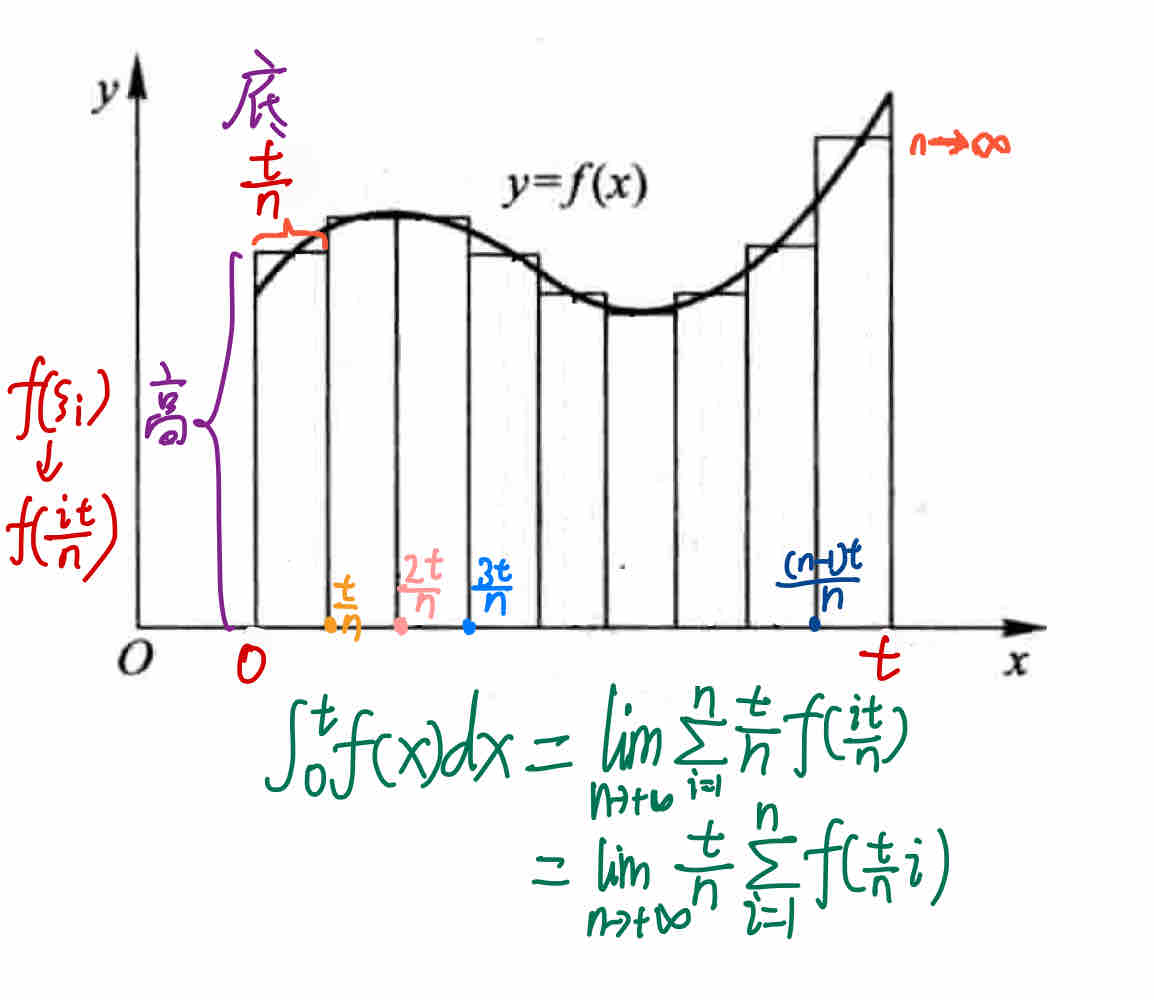 y
底
t/n
n→∞
y=f(x)
f(ξi)
↓
f(it/n)
高
t/n
2t/n
3t/n
(n-1)t/n
O
0
t
x
∫₀ᵗf(x)dx = lim n→+∞ ∑ i=1 n t/n f(it/n)
= lim n→+∞ t/n ∑ i=1 n f(t/n i)